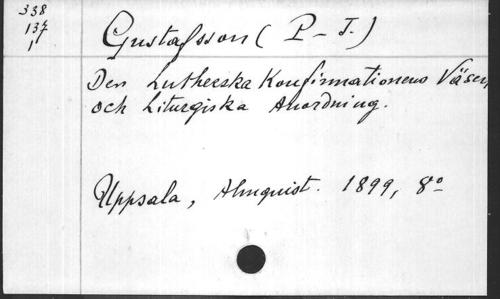 338
137
1
Gustafsson ( P - J. )
Den Lutherska Konfirmationens Väsen,
och Liturgiska Anordning.
Uppsala, Almquist. 1899, 8º